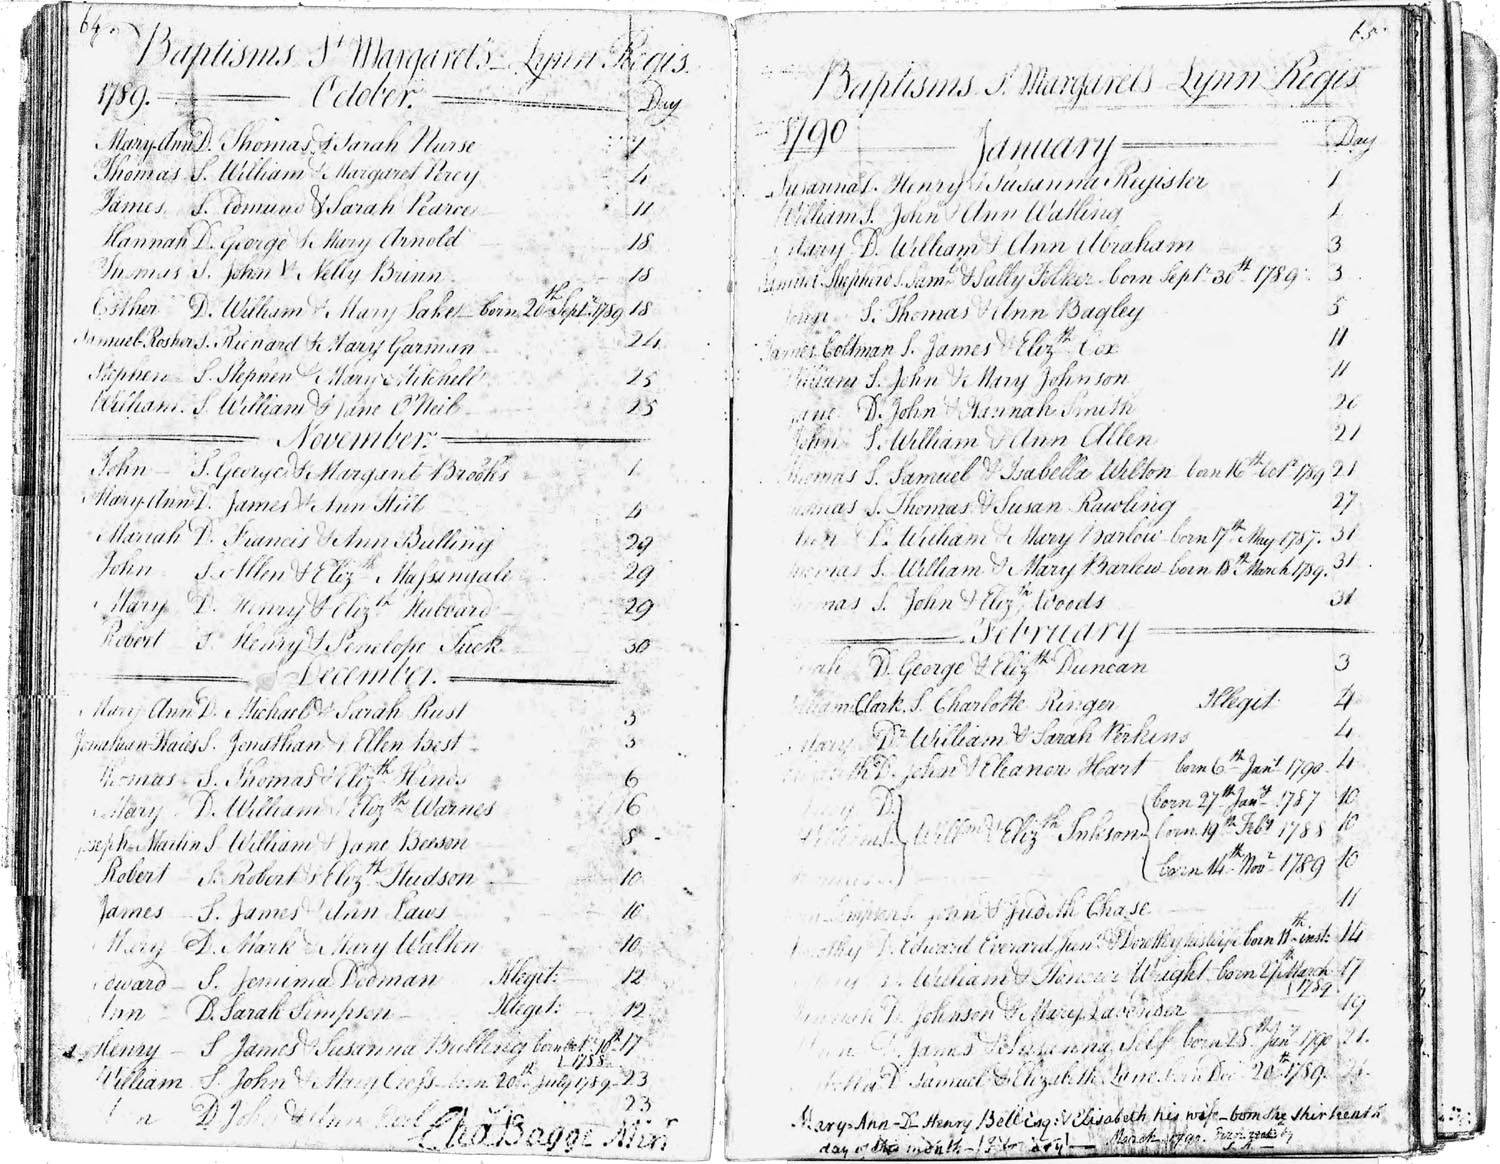 64
Baptisms St Margaret's Lynn Regis
1789. October. Day
Mary Ann D. Thomas & Sarah Nurse
Thomas S. William & Margaret Percy 4
James S. Edmund & Sarah Pearce 11
Hannah D. George & Mary Arnold 18
Thomas S. John & Nelly Brinn 18
Esther D. William & Mary Saker born 20th Septr. 1789 18
Samuel Rosher S. Richard & Mary Garman 24
Stephen S. Stephen & Mary Mitchell 25
William S. William & Jane O'Neil 25
November.
John S. George & Margaret Brooks 1
Mary Ann D. James & Ann Hill 4
Mariah D. Francis & Ann Bulling 29
John S. Allen & Elizth Massingale 29
Mary D. Henry & Elizth Hubbard 29
Robert S. Henry & Penelope Tuck 30
December.
Mary Ann D. Michael & Sarah Rust 3
Jonathan S. Jonathan & Ellen Best 3
Thomas S. Thomas & Elizth Hines 6
Mary D. William & Elizth Warnes 6
Joseph Martin S. William & Jane Beeson 8
Robert S. Robert & Elizth Hudson 10
James S. James & Ann Laws 10
Mary D. Mark & Mary Walten 10
Edward S. Jemima Dodman Illegit: 12
Ann D. Sarah Simpson Illegit: 12
Henry S James & Susanna Bulling born Octr. 10th 17
1788
William S. John & Mary Cross born 20th July 1789 23
D John & Ann 23
Chas. Bagge Minr
65
Baptisms St. Margarets Lynn Regis
1790 January Day
Susanna D. Henry & Susanna Register 1
William S. John & Ann Watling 1
Mary D. William & Ann Abraham 3
Samuel Shepherd S. Saml. & Sally Folker born Septr 30th 1789 3
John S. Thomas & Ann Bagley 5
James Coltman S. James & Elizth Cox 11
William S. John & Mary Johnson 11
Jane D. John & Hannah Smith 20
John S. William & Ann Allen 21
Thomas S. Samuel & Isabella Wilton born 16th Octr 1789 21
Thomas S. Thomas & Susan Rawling 27
Ann D. William & Mary Barlow born 17th May 1787. 31
Thomas S. William & Mary Barlow born 18th March 1789. 31
Thomas S. John & Elizth Woods 31
February
D. George & Elizth Duncan 3
William Clark S. Charlotte Ringer Illegit: 4
Mary Dr William & Sarah Perkins 4
Elizabeth D. John & Eleanor Hart born 6th Jany 1790 4
D. born 27th Jany 1787 10
William & Elizth Inkson born 19th Feby 1788 10
born 14th Novr 1789 10
Simpson S. John & Judith Chase 11
Dorothy D. Edward Everard Junr. & Dorothy his wife born 11th inst: 14
William & Honour Wright born 27th March 17
1789
Hannah D. Johnson & Mary Lavender 19
D. James & Susanna Self born 28th Jany 1790 21.
D. Samuel & Elizabeth Lane born Decr 20th 1789
Mary Ann Dr Henry Bell Esq: & Elisabeth his wife born the thirteenth
day of this month March 1790